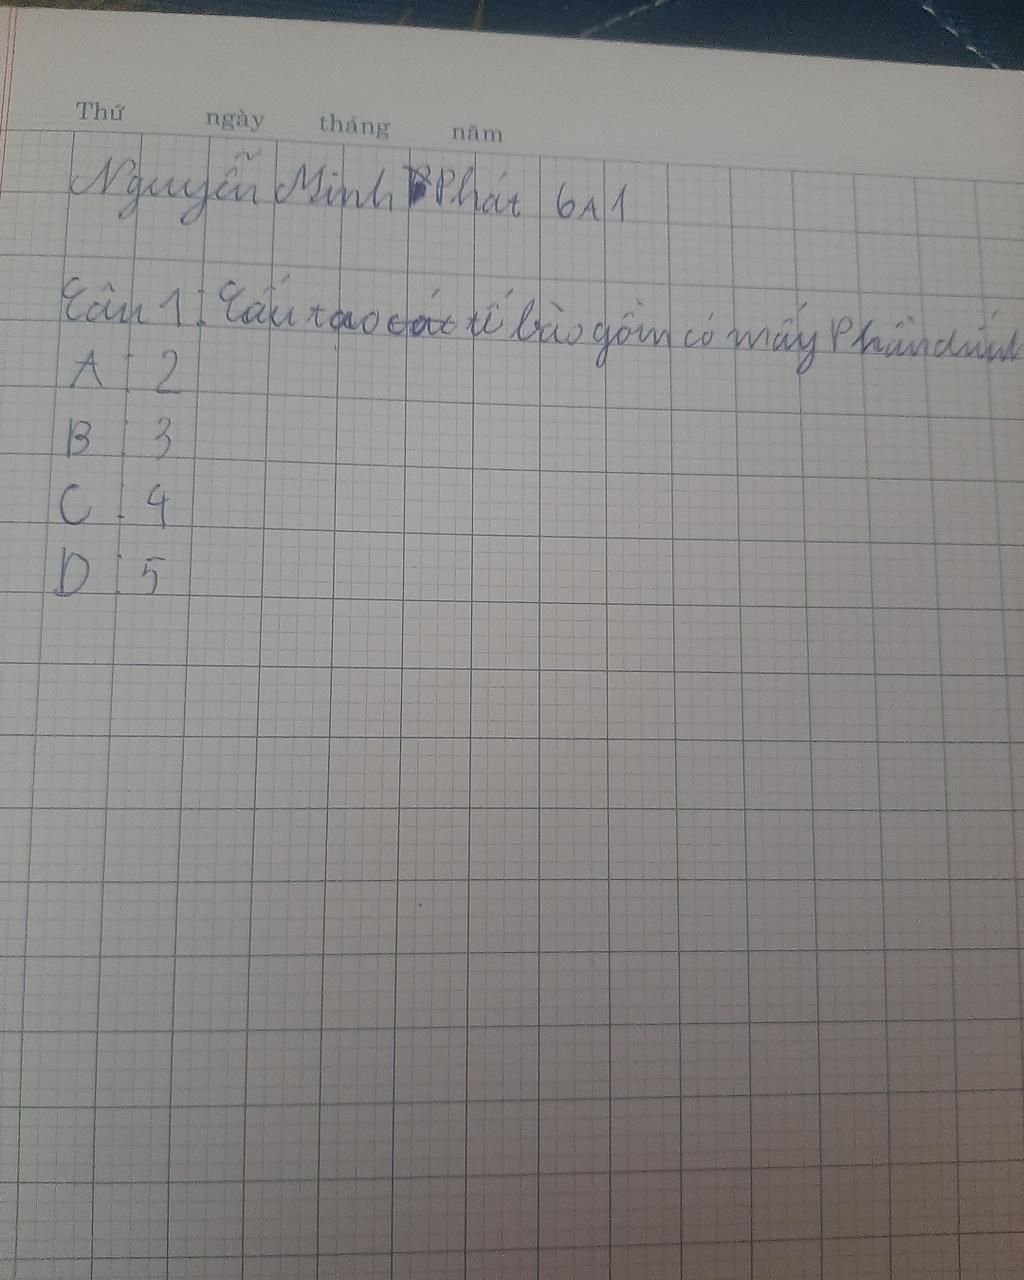 Thứ ngày tháng năm
Nguyễn Minh Phát 6A1
Câu 1: Cấu tạo tế bào gồm có mấy phần chính
A : 2
B : 3
C : 4
D : 5